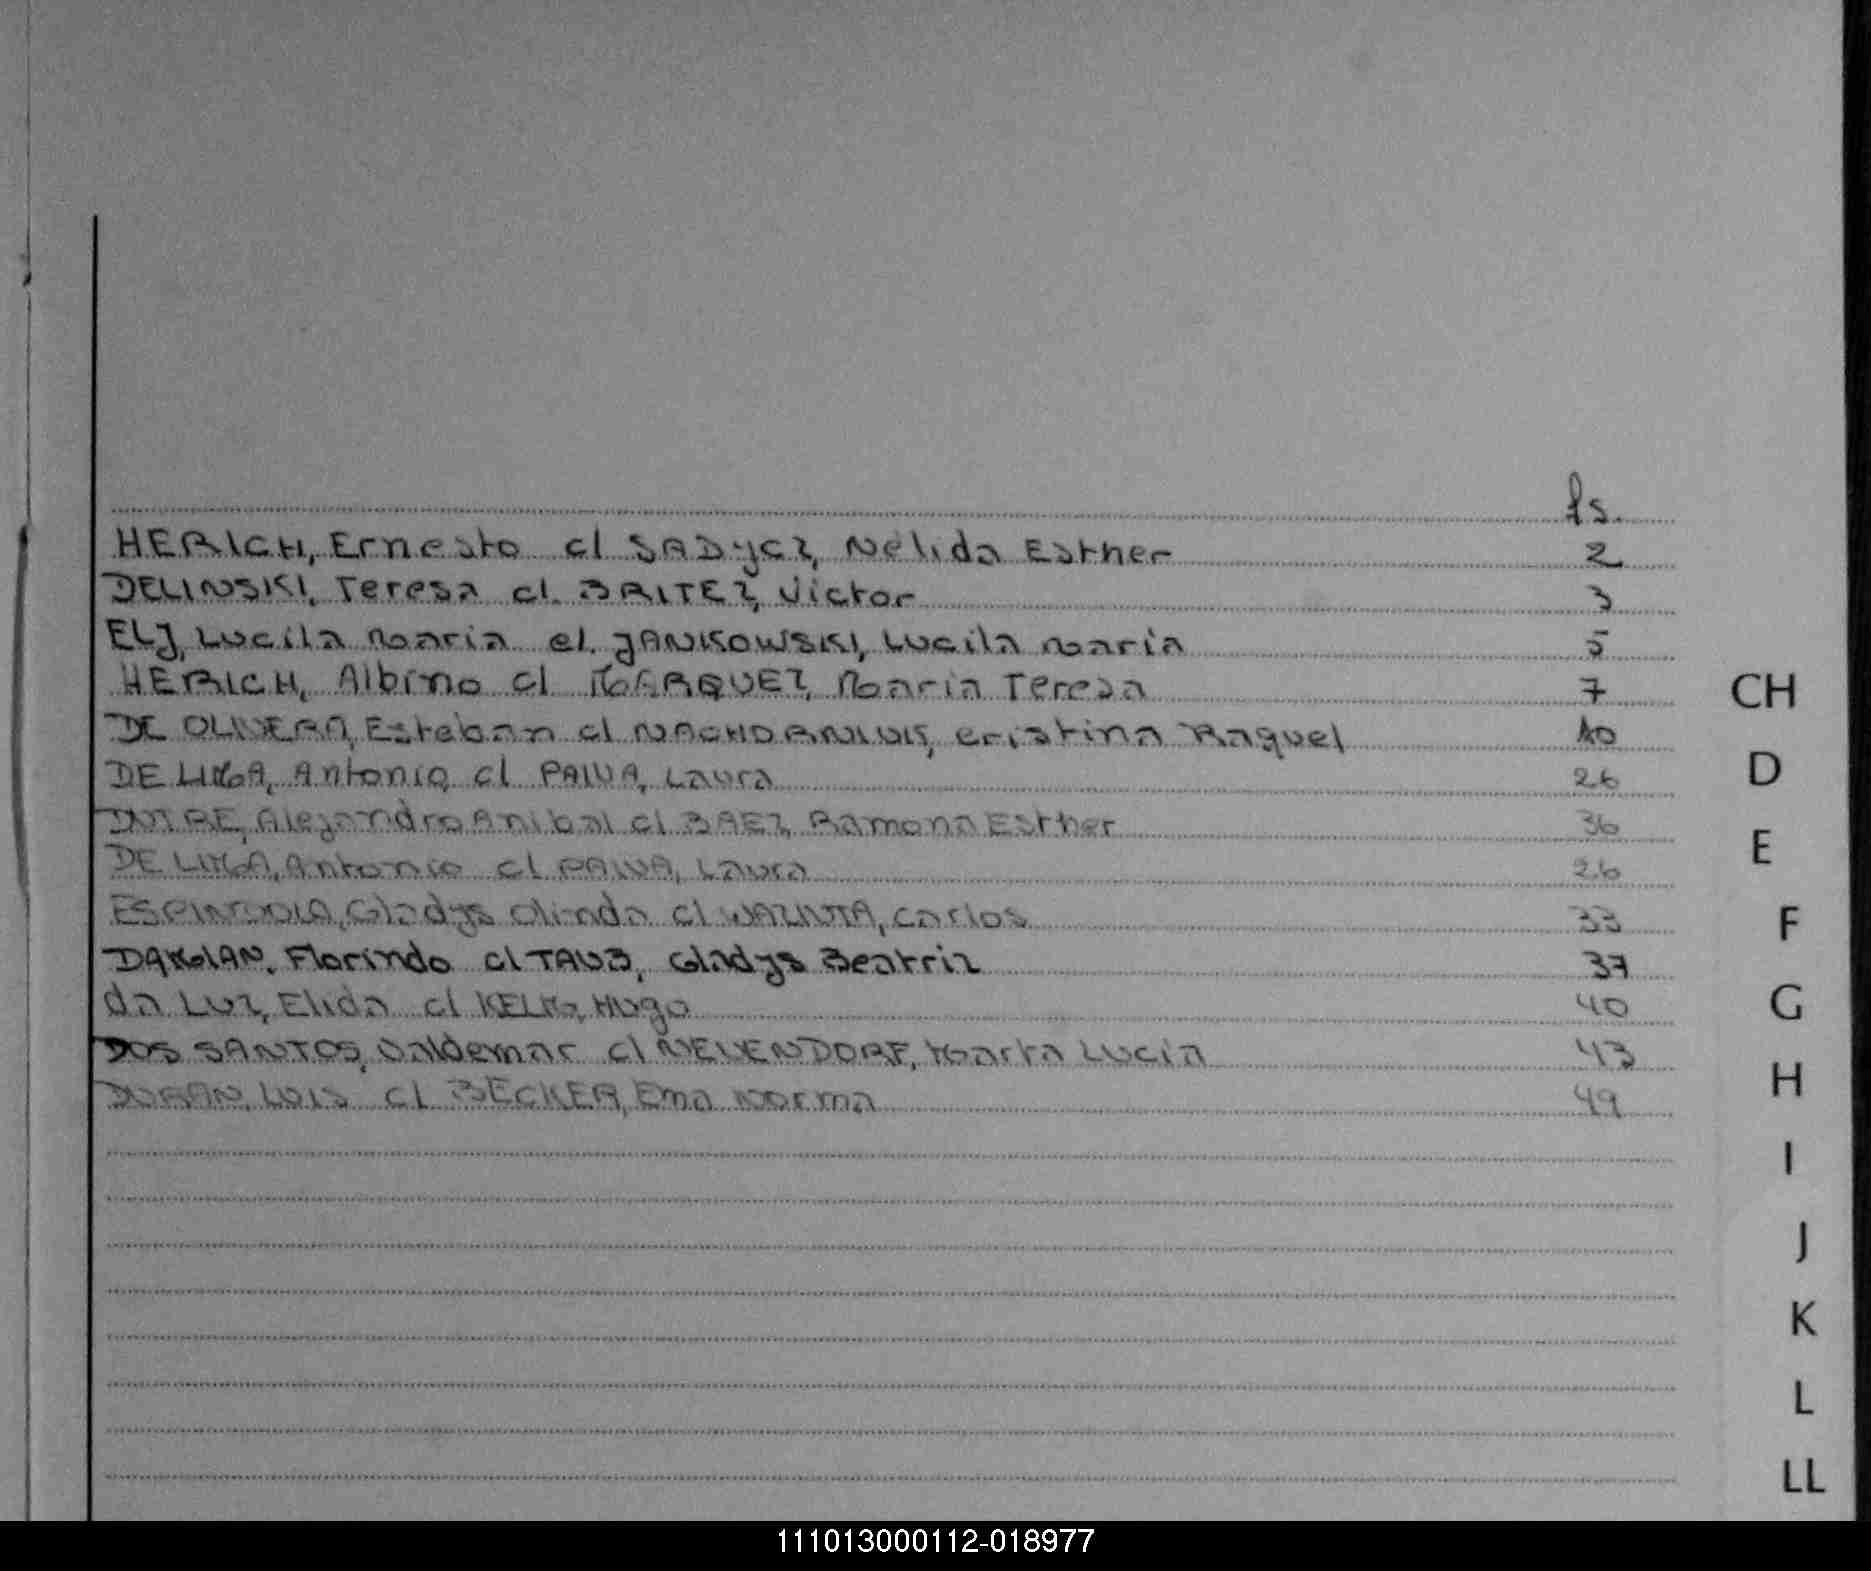 fs.
HERICH, Ernesto cl SADYCZ, Nélida Esther 2
DELINSKI, Teresa cl. BRITEZ, Victor 3
ELJ, Lucila Maria cl. JANKOWSKI, Lucila Maria 5
HERICH, Albino cl MARQUEZ, Maria Teresa 7
DE OLIVERA, Esteban cl Cristina Raquel 10
DE LIMA, Antonio cl PAIVA, Laura 26
Alejandro Anibal cl BAEZ, Ramona Esther 36
DE LIMA, Antonio cl PAIVA, Laura 26
ESPINDOLA, Gladys Olinda cl Carlos 33
Florindo cl TAUB, Gladys Beatriz 37
da LUZ, Elida cl KELM, Hugo 40
DOS SANTOS, Valdemar cl NEUENDORF, Marta Lucia 43
DURAN, LUIS cl BECKER, Ema Norma 49
CH
D
E
F
G
H
I
J
K
L
LL
111013000112-018977